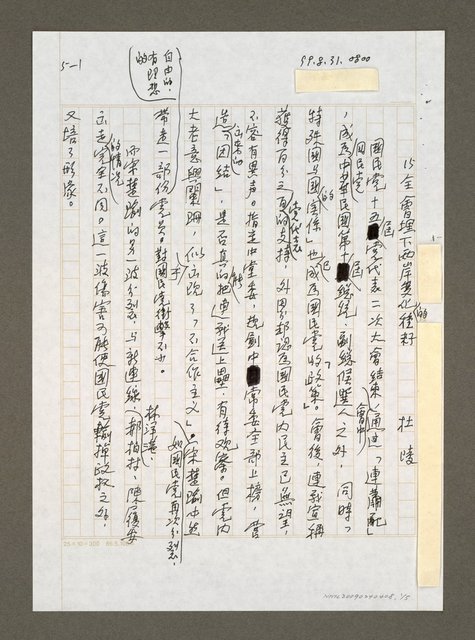 99.8.31. 0800
5-1
15全會埋下兩岸
杜陵
國民黨十五屆黨代表二次大會結束,會中通過「連蕭配」
國民黨
,成為中華民國第十屆總統、副總統候選人之外,同時,「
特殊國與國的關係」也已成為國民黨政策」。會後,連戰宣稱
獲得百分之百的黨代表支持,外界卻認為國民黨內民主已無望,
不容有異聲。指定中常委,規劃中常委全部上榜,當
團結」,是否真的能把連戰送上壘,有待觀察。但黨內
大老意興闌珊,似出現了「不合作主義」。宋楚瑜出走
自由的,有理想的
帶走一部份黨員。對國民黨衝擊不少。如國民黨再次分裂,
而宋楚瑜的另一波分裂,與新連線林洋港、郝柏村、陳履安
出走的情況完全不同。這一波傷害可能使國民黨輸掉政權之外,
又培了形象。
25×10=200
NMTL20090240408, 1/5